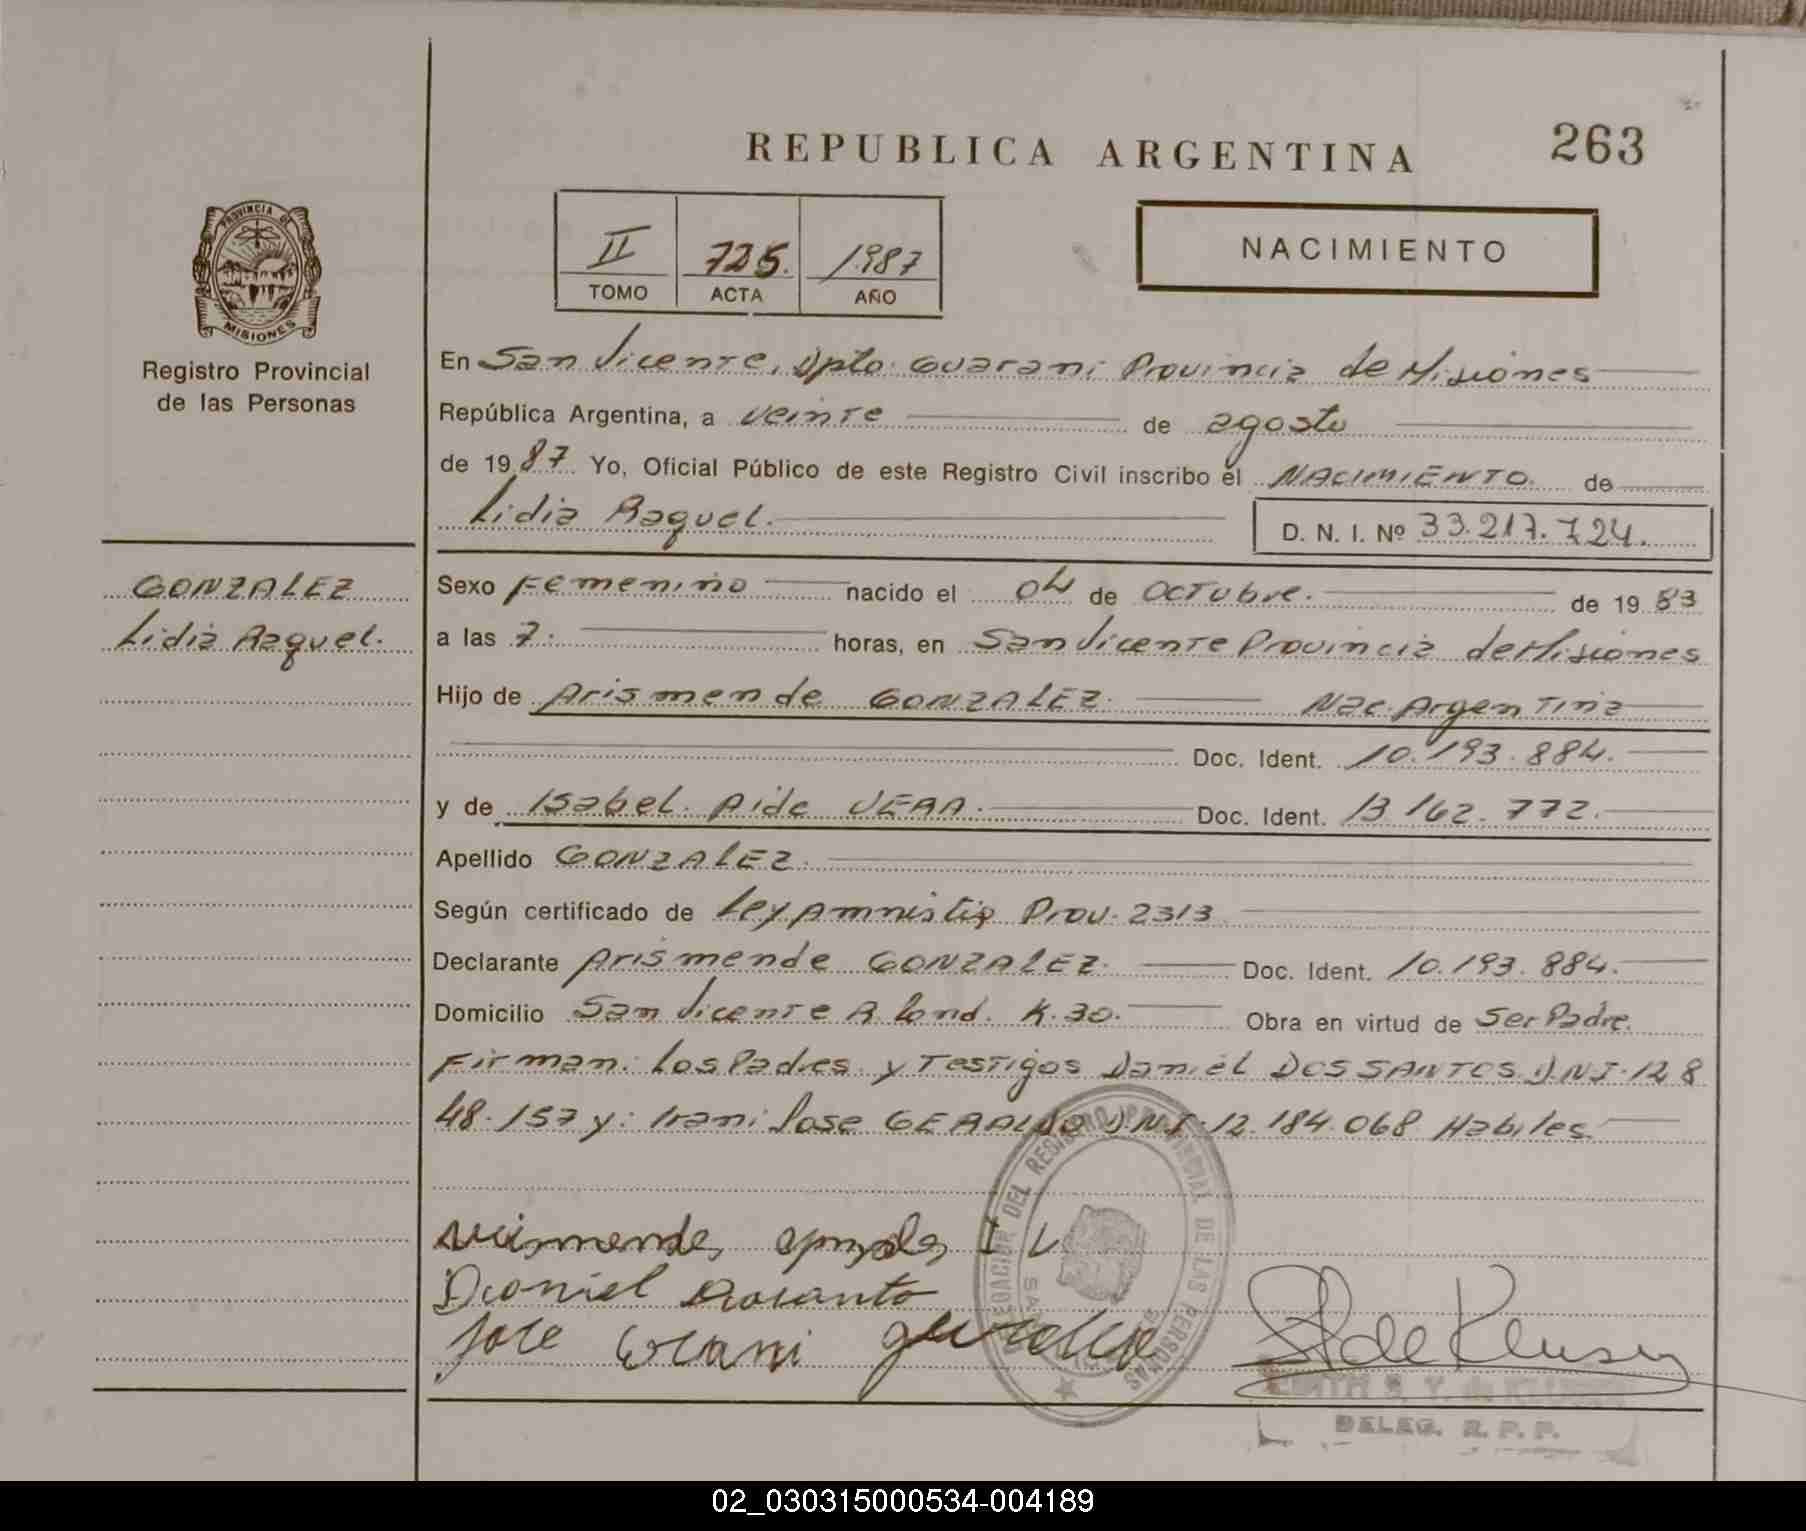 REPUBLICA ARGENTINA
263
PROVINCIA DE
MISIONES
Registro Provincial
de las Personas
II 725. 1987
TOMO ACTA AÑO
NACIMIENTO
En San Vicente, Dpto. Guarani Provincia de Misiones
República Argentina, a veinte de agosto
de 19 87 Yo, Oficial Público de este Registro Civil inscribo el NACIMIENTO de
Lidia Raquel.
D. N. I. Nº 33.217.724.
GONZALEZ
Lidia Raquel.
Sexo Femenino nacido el 04 de Octubre. de 19 83
a las 7: horas, en San Vicente Provincia de Misiones
Hijo de Arismende GONZALEZ. Nac. Argentina
Doc. Ident. 10.193.884.
y de Isabel Aide VERA. Doc. Ident. 13.162.772.
Apellido GONZALEZ.
Según certificado de Ley Amnistia Prov. 2313
Declarante Arismende GONZALEZ. Doc. Ident. 10.193.884.
Domicilio San Vicente R. Cond. K.30. Obra en virtud de Ser Padre.
Firman: Los Padres y Testigos Daniel DOS SANTOS DNI. 12 8
48.157 y: Irani Jose GERALDO DNI 12.184.068 Habiles
I V
Daniel
Jose Irani
de Klusen
DELEGACION DEL REGISTRO PROVINCIAL DE LAS PERSONAS
DELEG. R. P. P.
02_030315000534-004189